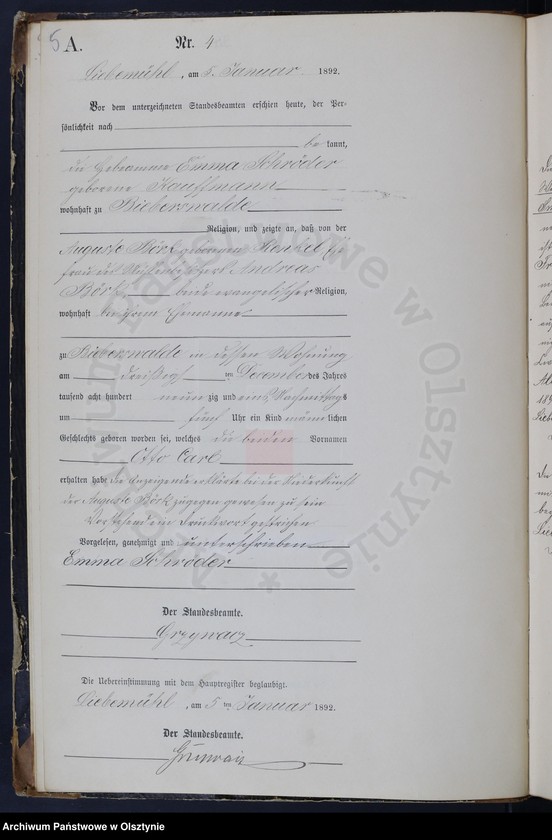 5 A.
Nr. 4
Liebemühl, am 5. Januar 1892.
Vor dem unterzeichneten Standesbeamten erschien heute, der Per-
sönlichkeit nach
be kannt,
die Hebeamme Emma Schröder
geborene Kauffmann
wohnhaft zu Bieberswalde
Religion, und zeigte an, daß von der
Auguste Börk geborenen Henkel Ehe
frau des Andreas
Börk beide evangelischer Religion,
wohnhaft bei ihrem Ehemanne
zu Bieberswalde in dessen Wohnung
am dreißigsten December des Jahres
tausend acht hundert neunzig und eins Nachmittags
um fünf Uhr ein Kind männlichen
Geschlechts geboren worden sei, welches die beiden Vornamen
Otto Carl
erhalten habe die Anzeigende erklärte bei der Niederkunft
der Auguste Börk zugegen gewesen zu sein
Vorstehend ein Druckwort gestrichen
Vorgelesen, genehmigt und unterschrieben
Emma Schröder
Der Standesbeamte.
Grzywacz
Die Uebereinstimmung mit dem Hauptregister beglaubigt.
Liebemühl, am 5 ten Januar 1892.
Der Standesbeamte.
Archiwum Państwowe w Olsztynie
Archiwum Państwowe w Olsztynie